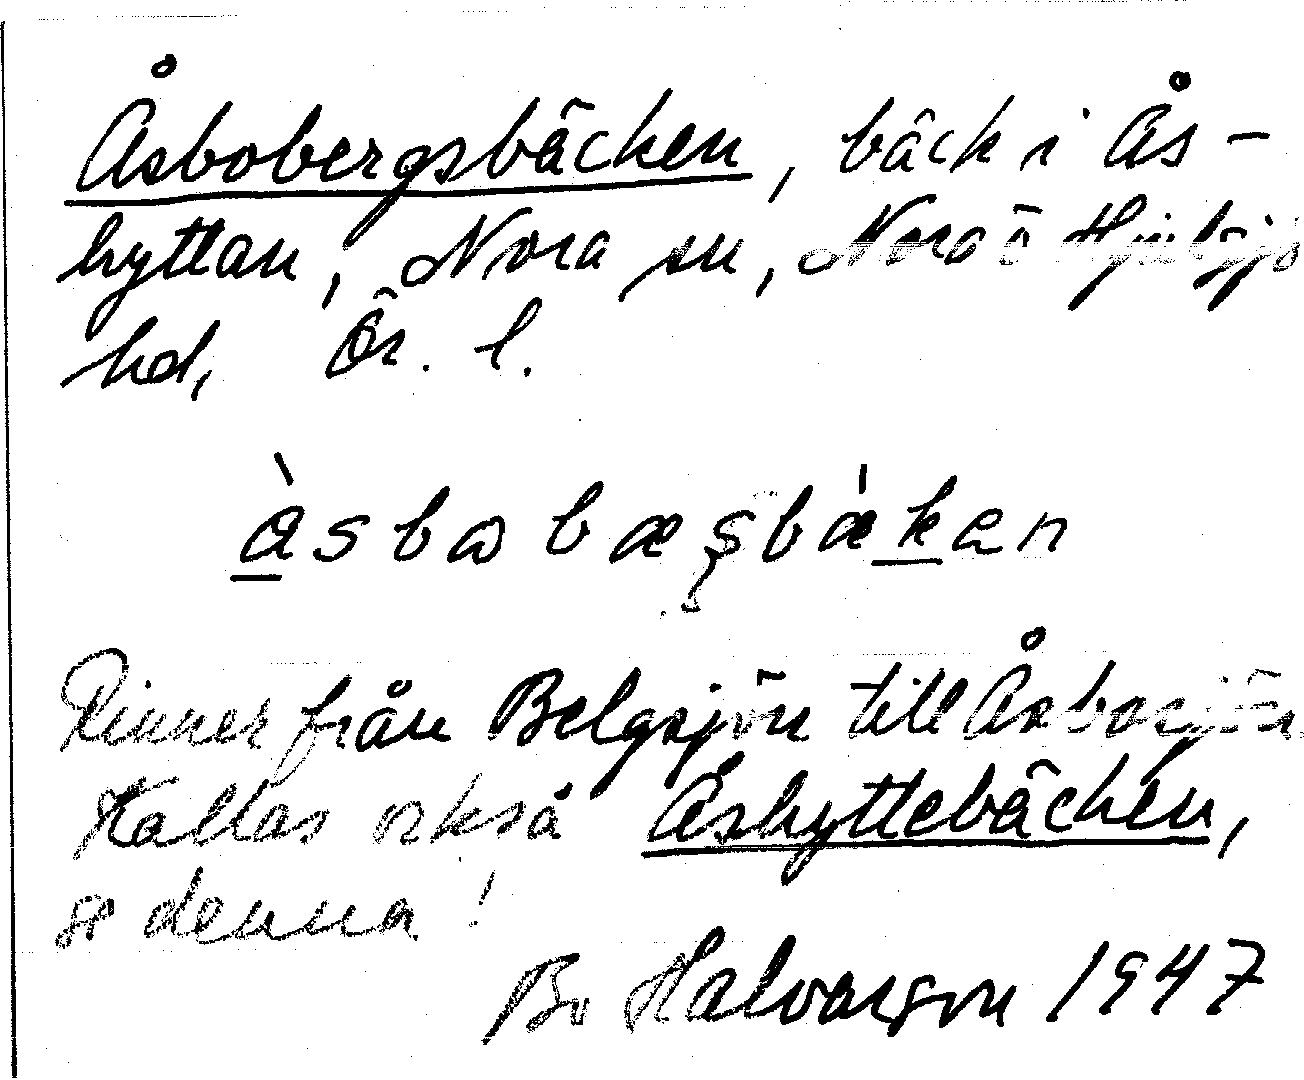 Åsbobergsbäcken, bäck i Ås-
hyttan, Nora sn, Nora o Hjulsjö
hd, Ör. l.
å̀sbobæșbæ̍ken
Rinner från Belgsjön till Åsbosjön.
Kallas också Åshyttebäcken,
se denna!
Bo Halvarson 1947